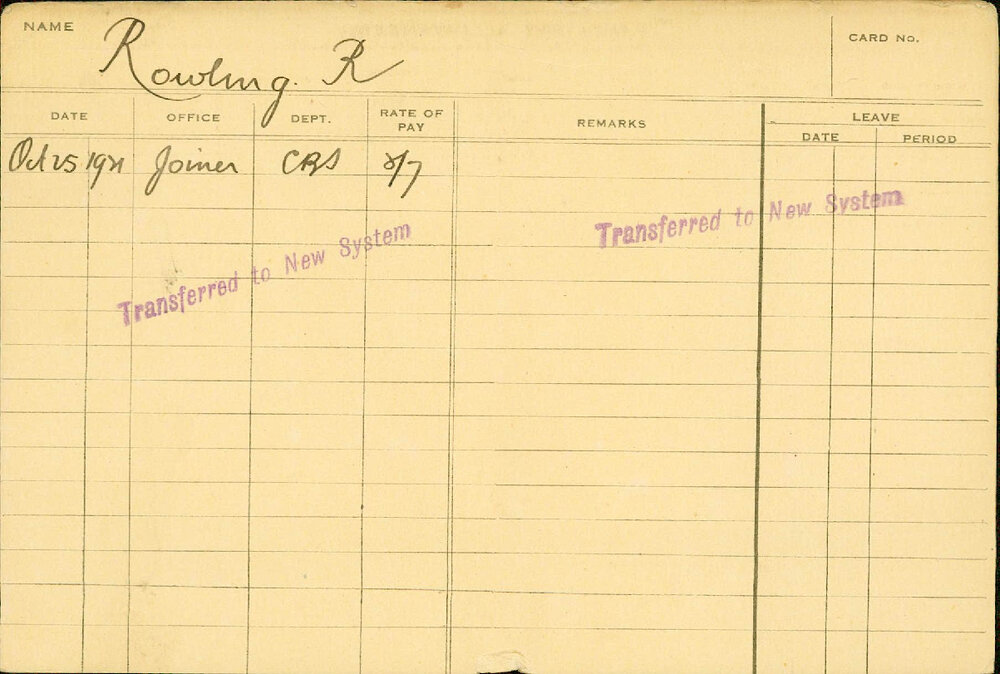 NAME Rowling. R CARD No.
DATE OFFICE DEPT. RATE OF PAY REMARKS LEAVE
DATE PERIOD
Oct 25 1921 Joiner CRS 2/7
Transferred to New System
Transferred to New System